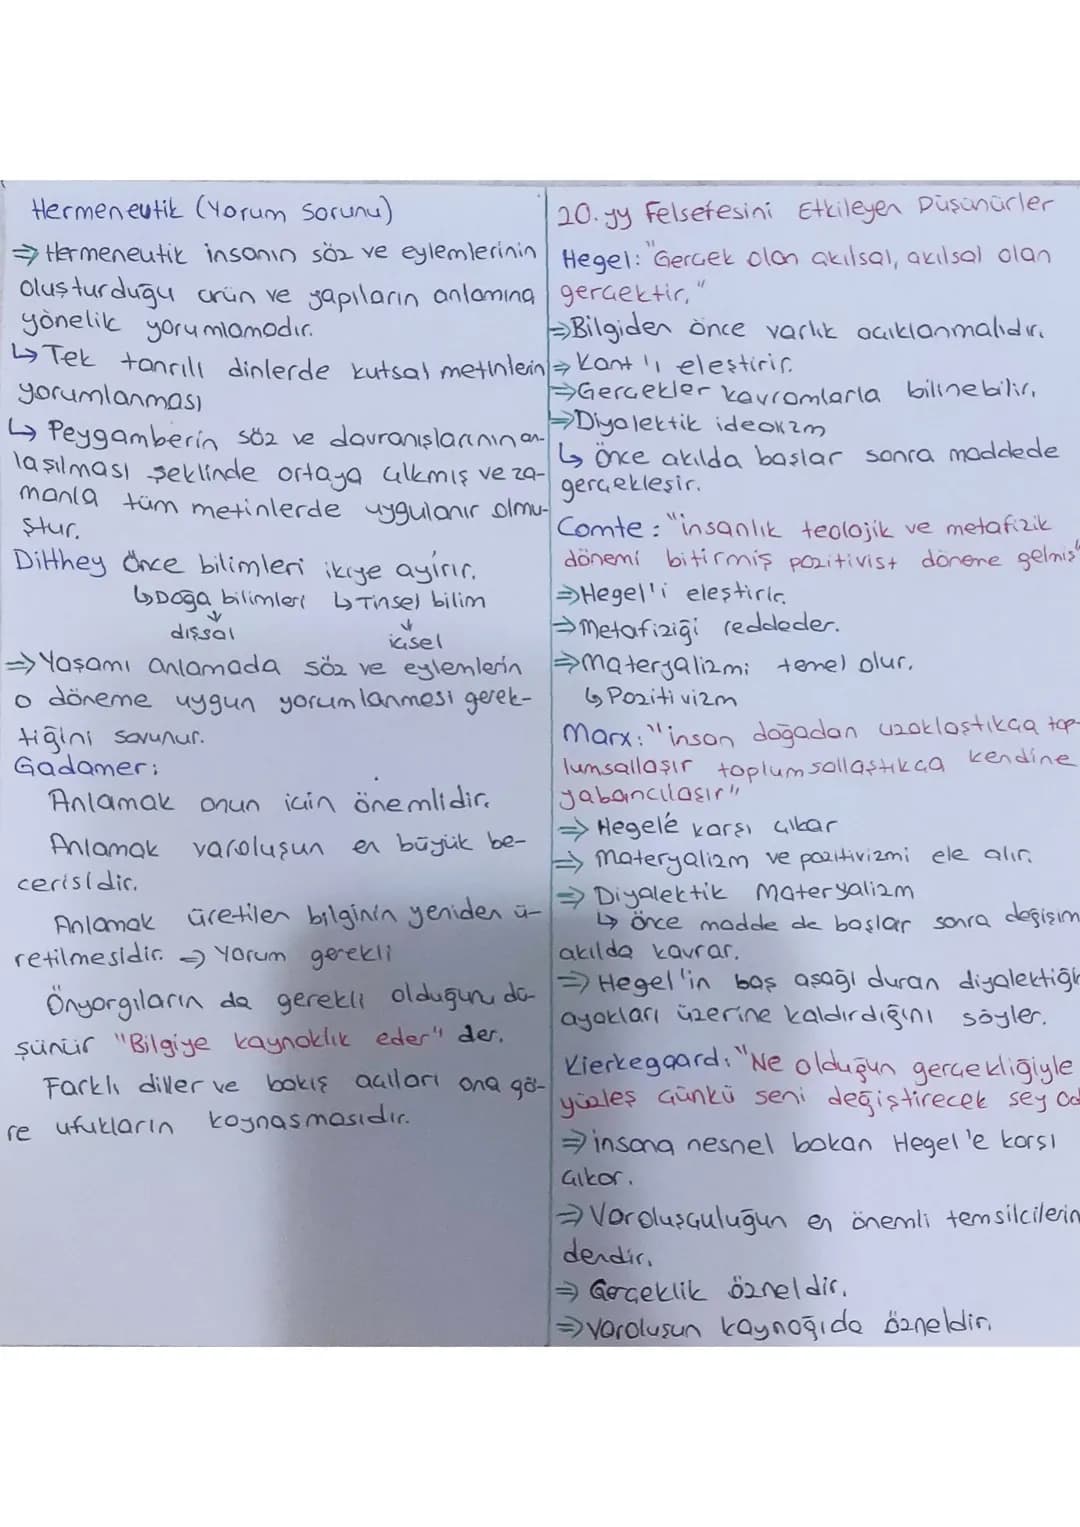 Hermeneutik (Yorum Sorunu)
⇒ Hermeneutik insanın söz ve eylemlerinin
oluşturduğu ürün ve yapıların anlamına
yönelik yorumlamadır.
↳ Tek tanrılı dinlerde kutsal metinlerin
yorumlanması
↳ Peygamberin söz ve davranışlarının an-
laşılması şeklinde ortaya çıkmış ve za-
manla tüm metinlerde uygulanır olmu-
ştur.
Dilthey Önce bilimleri ikiye ayırır.
↳ Doğa bilimleri ↳ Tinsel bilim
↓ ↓
dışsal içsel
⇒ Yaşamı anlamada söz ve eylemlerin
o döneme uygun yorumlanması gerek-
tiğini savunur.
Gadamer:
Anlamak onun için önemlidir.
Anlamak varoluşun en büyük be-
cerisidir.
Anlamak üretilen bilginin yeniden ü-
retilmesidir. ⇒ Yorum gerekli
Önyargıların da gerekli olduğunu dü-
şünür "Bilgiye kaynaklık eder" der.
Farklı diller ve bakış açıları ona gö-
re ufukların kaynaşmasıdır.
20. yy Felsefesini Etkileyen Düşünürler
Hegel: "Gerçek olan akılsal, akılsal olan
gerçektir."
⇒ Bilgiden önce varlık açıklanmalıdır.
⇒ Kant'ı eleştirir.
⇒ Gerçekler kavramlarla bilinebilir.
⇒ Diyalektik idealizm
↳ Önce akılda başlar sonra maddede
gerçekleşir.
Comte: "insanlık teolojik ve metafizik
dönemi bitirmiş pozitivist döneme gelmiş"
⇒ Hegel'i eleştirir.
⇒ Metafiziği reddeder.
⇒ Materyalizmi temel olur.
↳ Pozitivizm
Marx: "insan doğadan uzaklaştıkça top-
lumsallaşır toplumsallaştıkça kendine
yabancılaşır"
⇒ Hegele karşı çıkar
⇒ Materyalizm ve pozitivizmi ele alır.
⇒ Diyalektik Materyalizm
↳ Önce madde de başlar sonra değişim
akılda kavrar.
⇒ Hegel'in baş aşağı duran diyalektiğin
ayakları üzerine kaldırdığını söyler.
Kierkegaard: "Ne olduğun gerçekliğiyle
yüzleş çünkü seni değiştirecek şey
⇒ insana nesnel bakan Hegel'e karşı
çıkar.
⇒ Varoluşçuluğun en önemli temsilcilerin
dendir.
⇒ Gerçeklik özneldir.
⇒ Varoluşun kaynağıda özneldir.